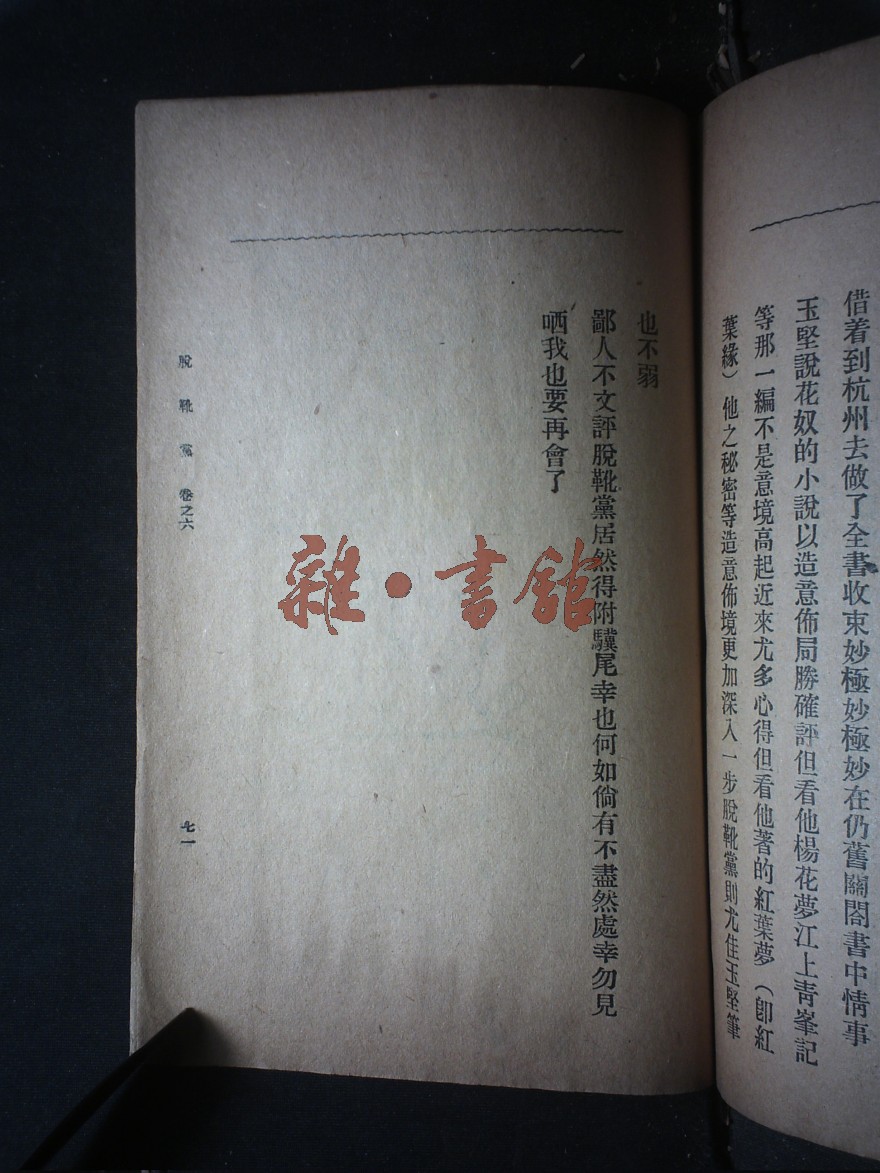 借着到杭州去做了全書收束妙極妙極妙在仍舊關閤書中情事
玉堅說花奴的小說以造意佈局勝確評但看他楊花夢江上青峯記
等那一編不是意境高起近來尤多心得但看他著的紅葉夢（卽紅
葉緣）他之秘密等造意佈境更加深入一步脫靴黨則尤佳玉堅筆
也不弱
鄙人不文評脫靴黨居然得附驥尾幸也何如倘有不盡然處幸勿見
哂我也要再會了
脫靴黨 卷之六
七一
雜·書館